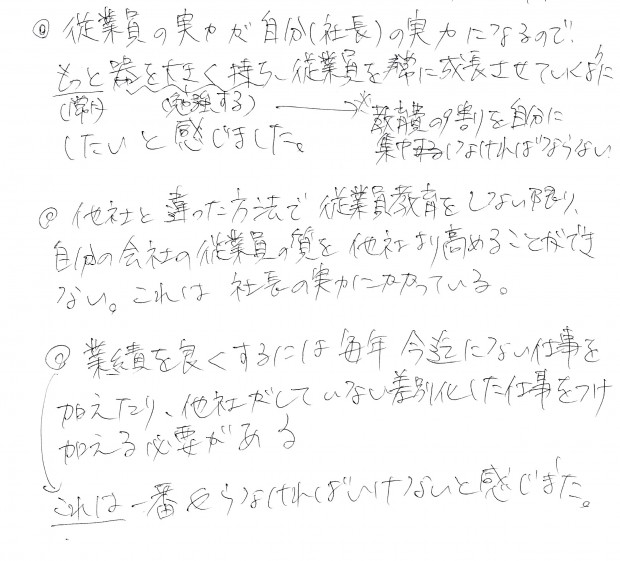 ◎ 従業員の実力が自分(社長)の実力になるので、
もっと器を大きく持ち、従業員を常に成長させていくように
(常に) (勉強する) → ※教育費の9割を自分に
したいと感じました。 集中しなければならない
◎ 他社と違った方法で従業員教育をしない限り、
自分の会社の従業員の質を他社より高めることができ
ない。これは社長の実力にかかっている。
◎ 業績を良くするには毎年今迄にない仕事を
加えたり、他社がしていない差別化した仕事をつけ
加える必要がある
これは一番やらなければいけないと感じました。